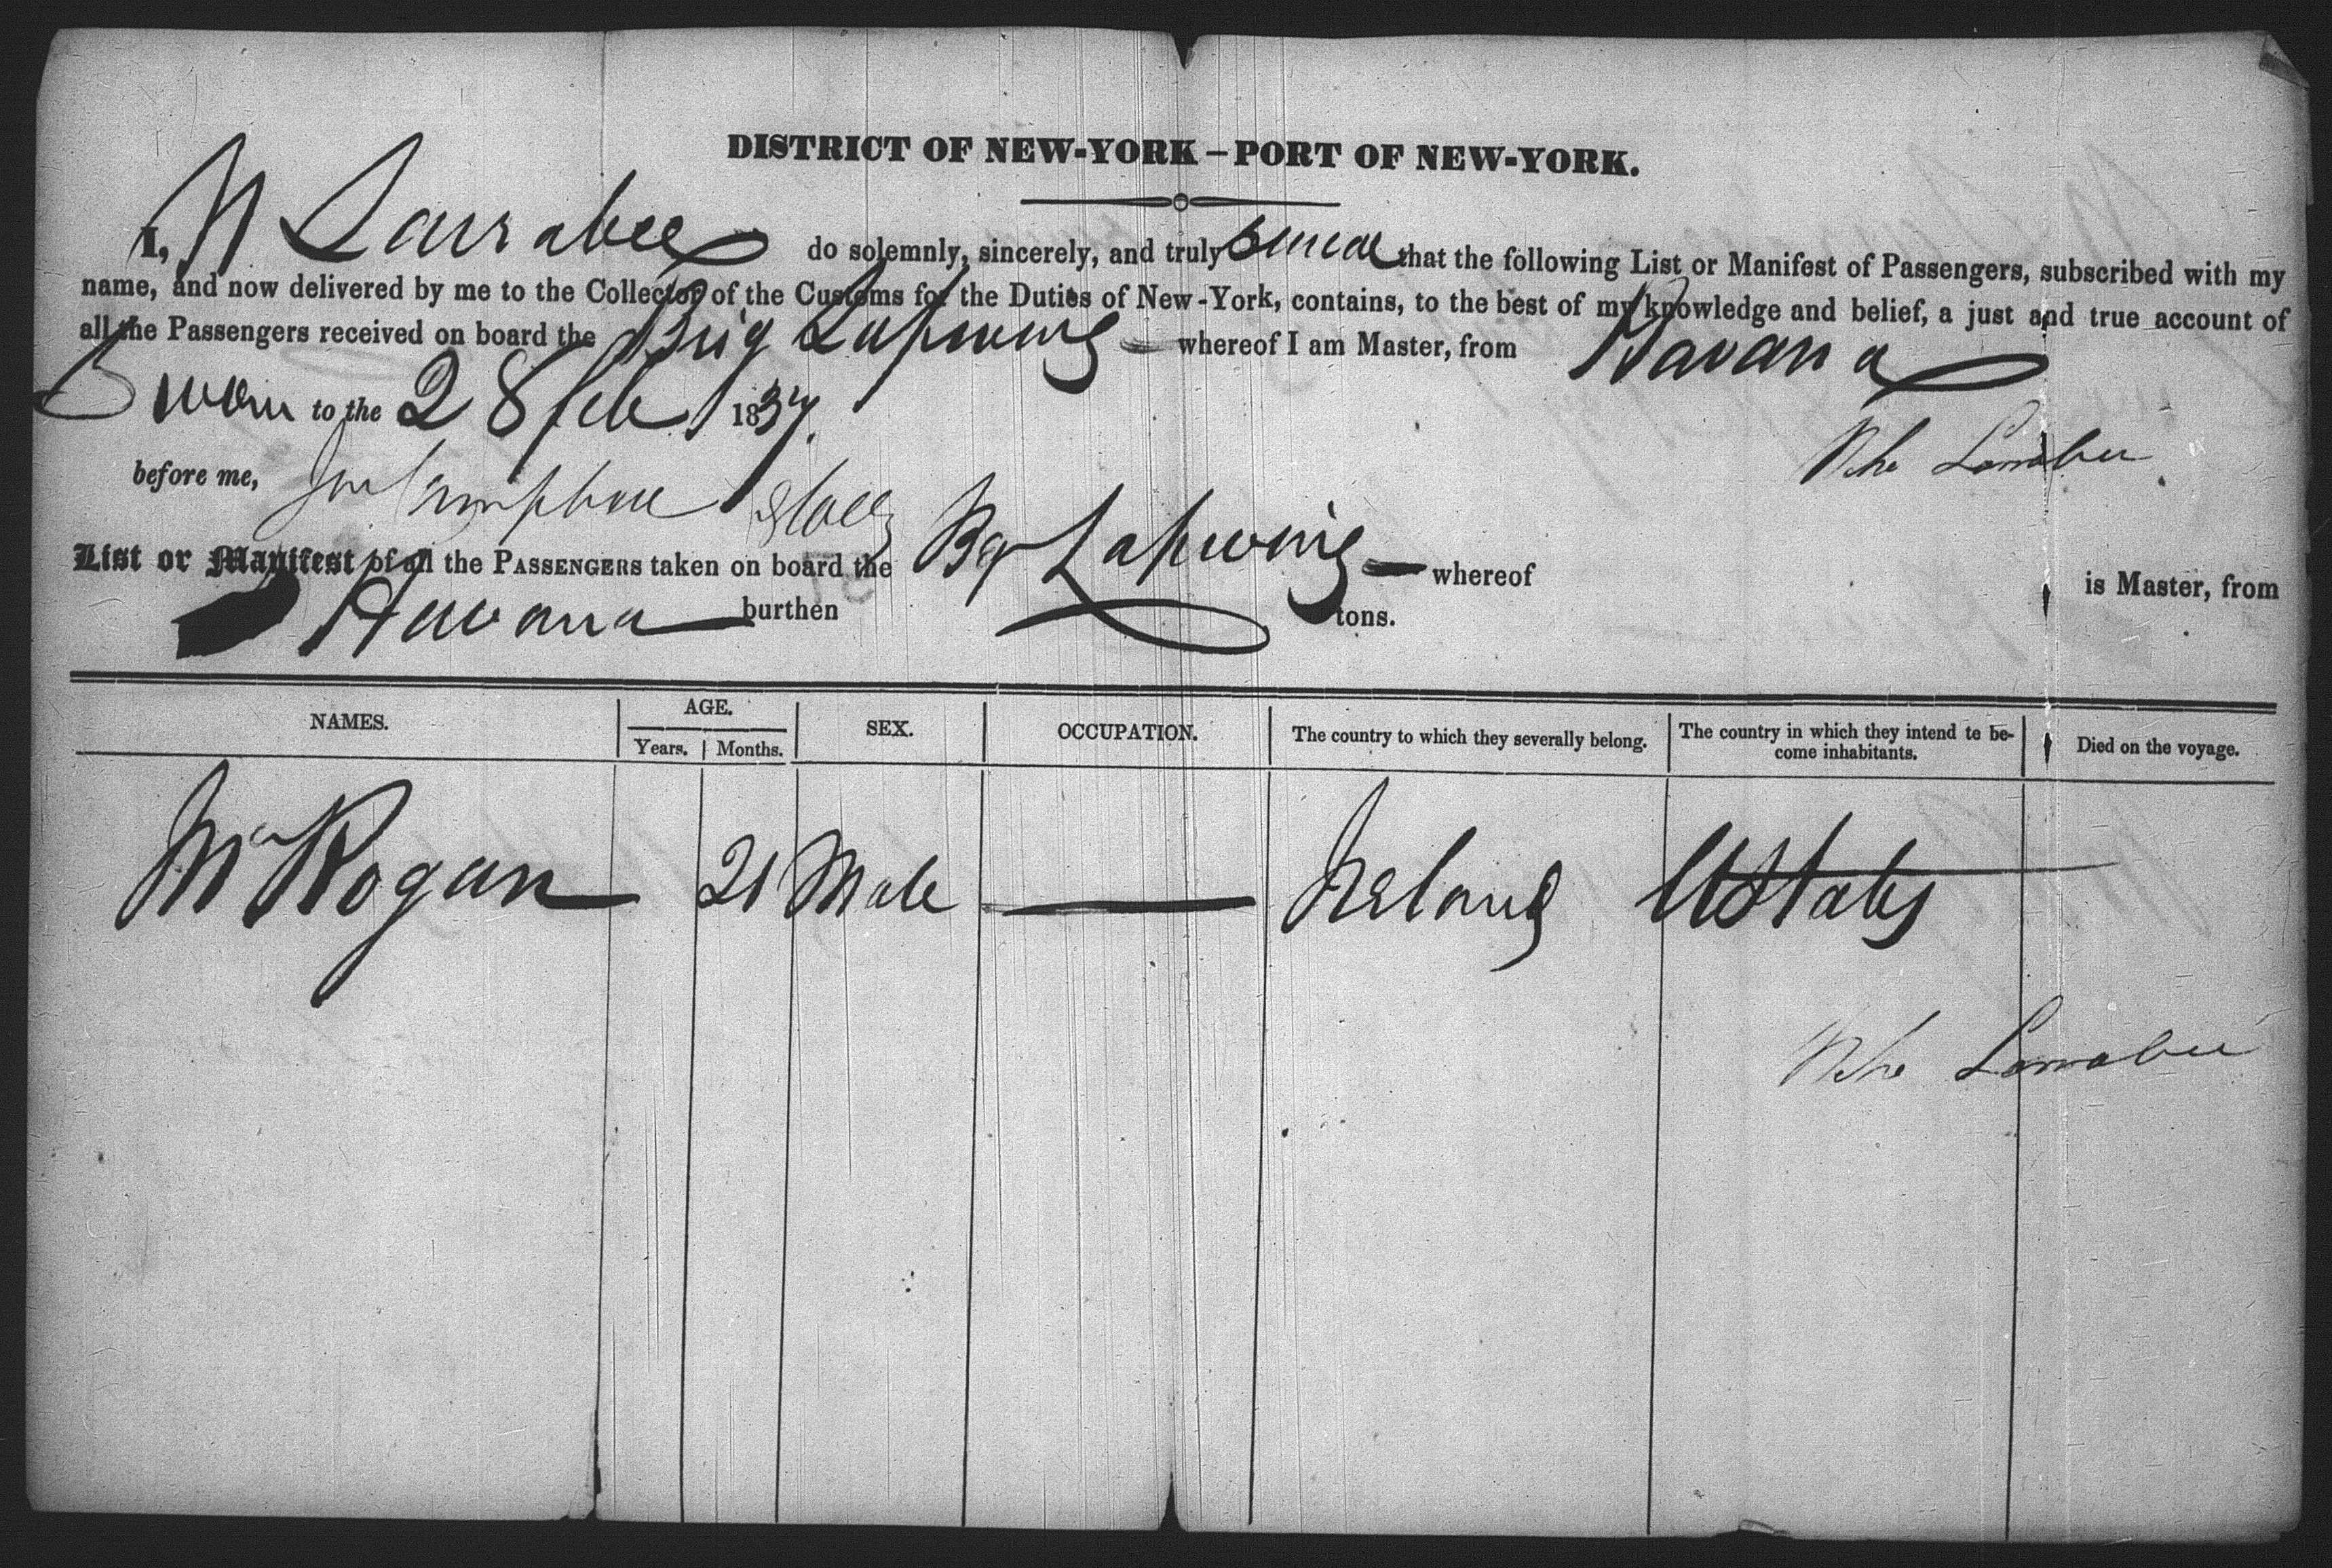 DISTRICT OF NEW-YORK – PORT OF NEW-YORK.
I, N Larrabee do solemnly, sincerely, and truly swear that the following List or Manifest of Passengers, subscribed with my
name, and now delivered by me to the Collector of the Customs for the Duties of New-York, contains, to the best of my knowledge and belief, a just and true account of
all the Passengers received on board the Brig Lapwing whereof I am Master, from Havana
Sworn to the 28 Feb 1837.
Larrabee
before me,
List or Manifest of all the PASSENGERS taken on board the Bg Lapwing whereof is Master, from
Havana burthen tons.
NAMES. AGE. SEX. OCCUPATION. The country to which they severally belong. The country in which they intend to be- Died on the voyage.
Years. Months. come inhabitants.
Mr Rogan 21 Male — Ireland UStates
Larrabee